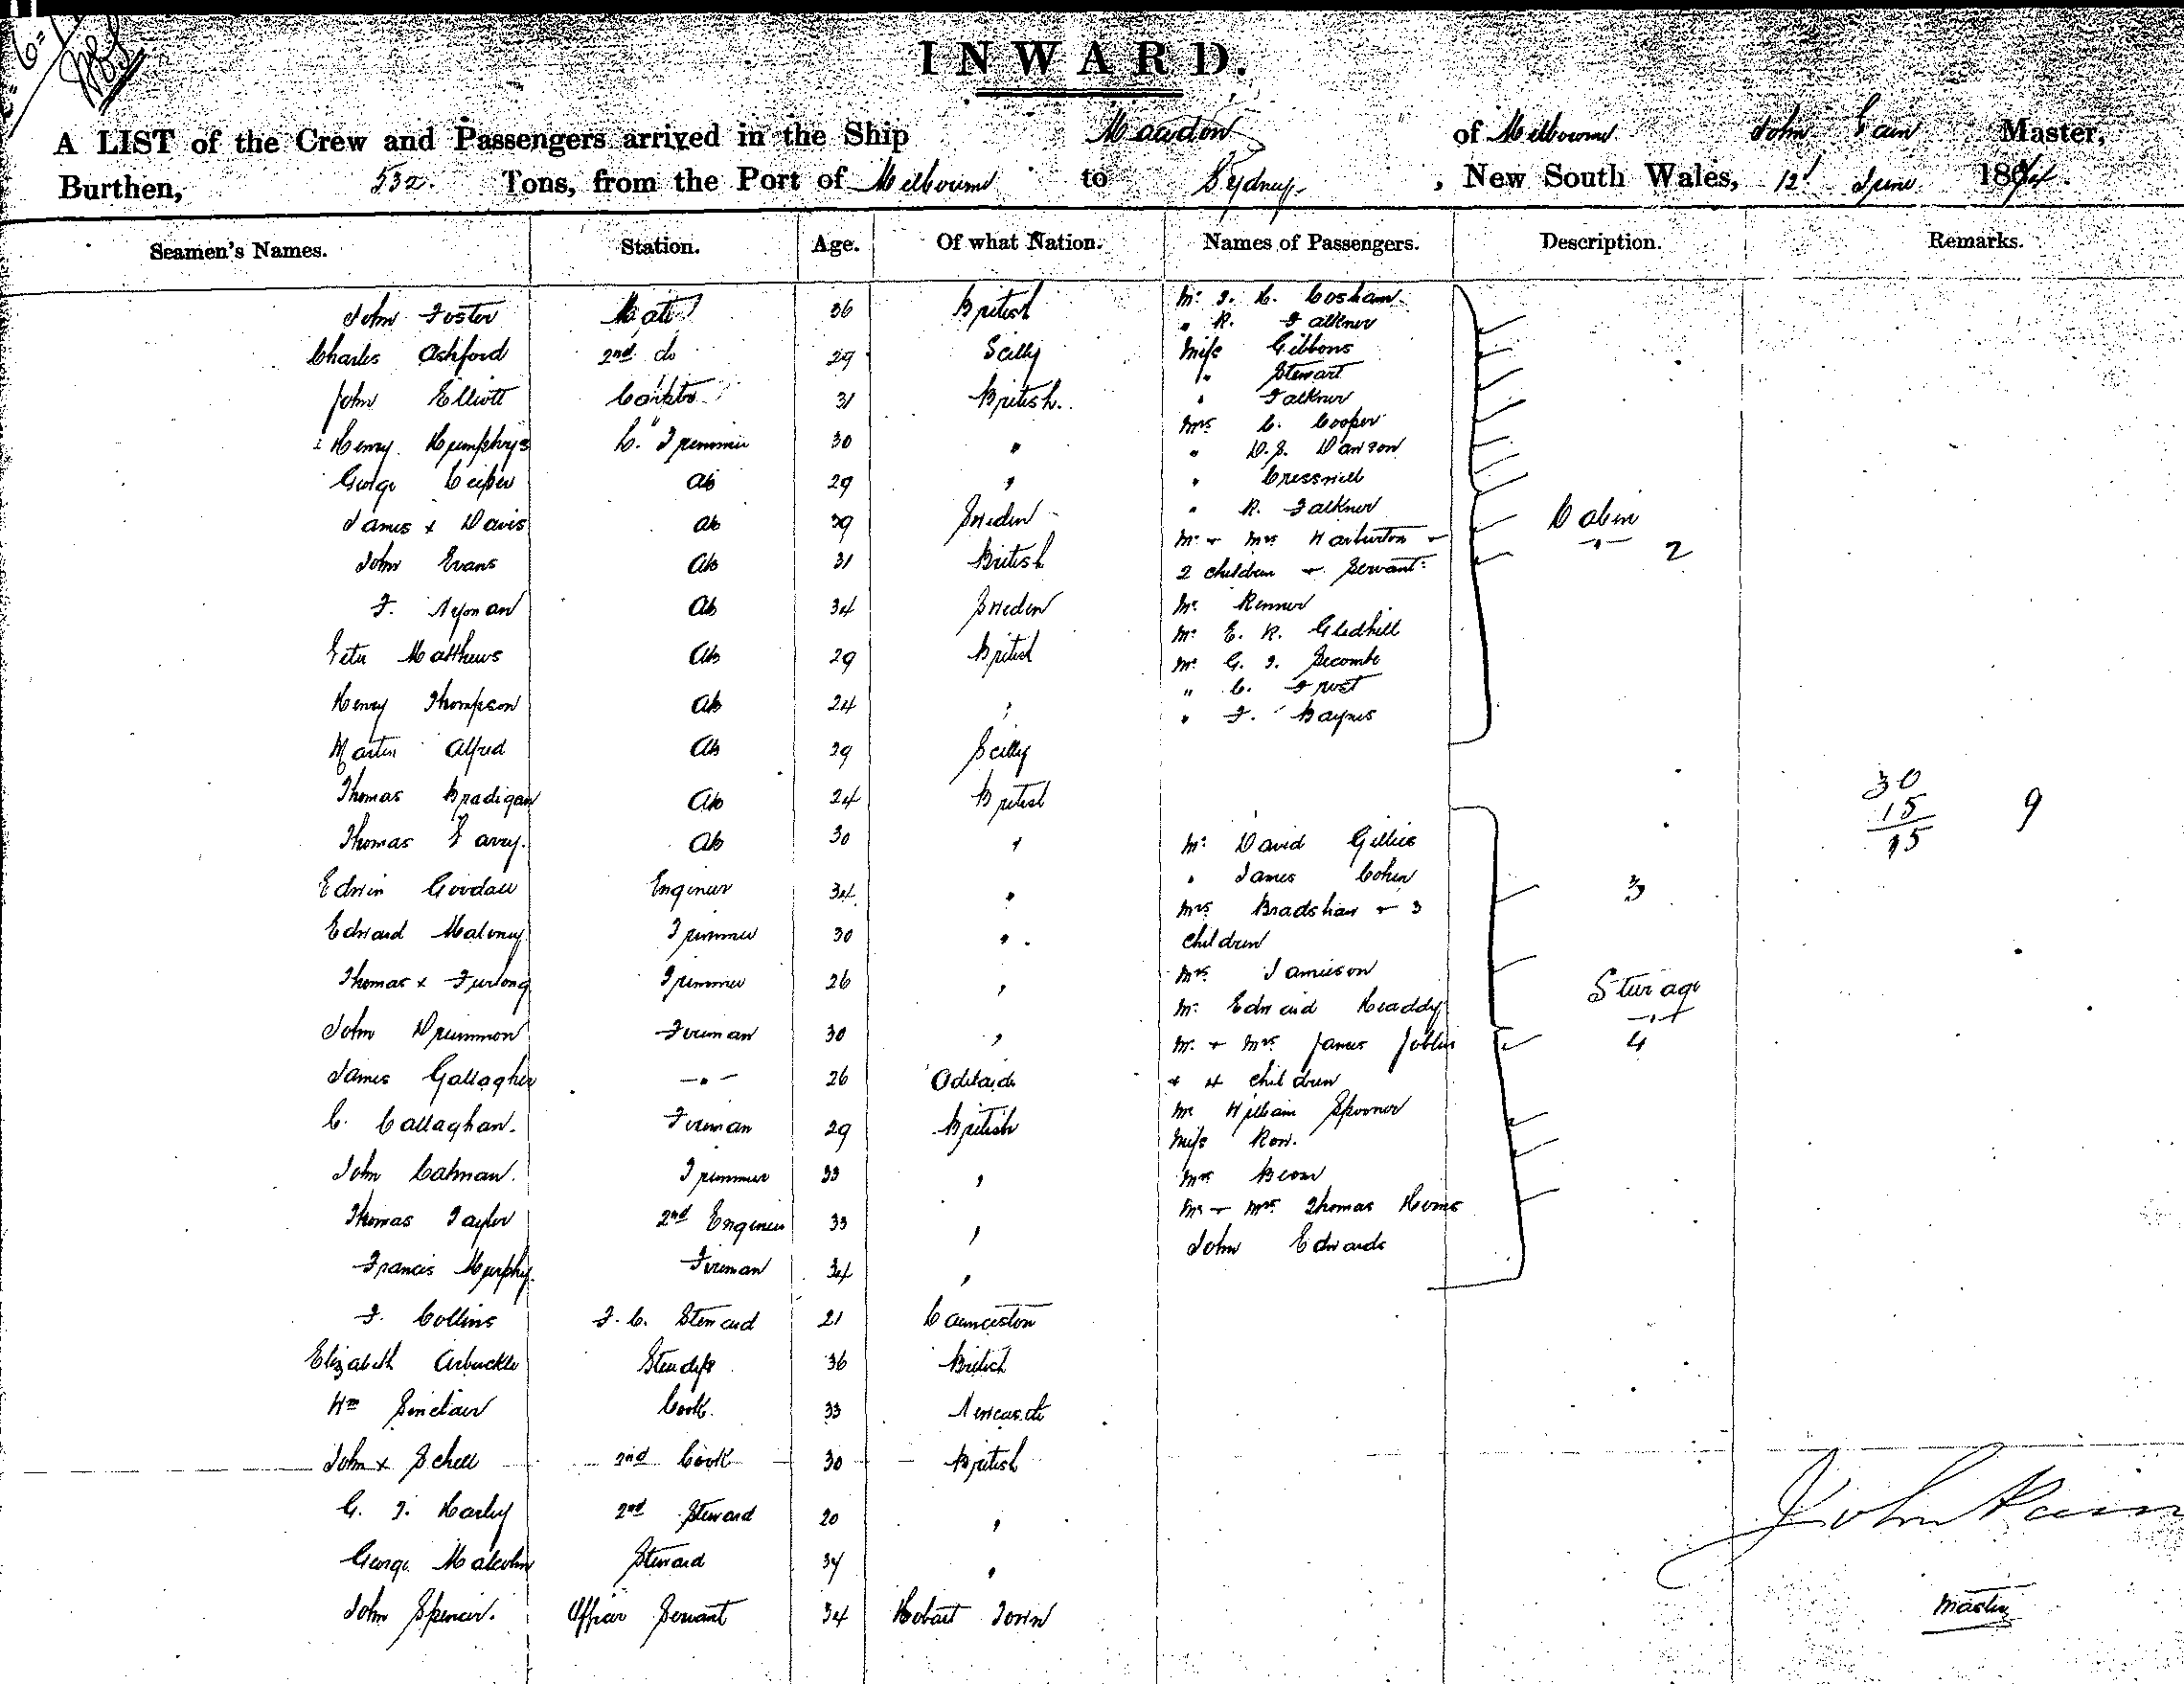 INWARD.
A LIST of the Crew and Passengers arrived in the Ship Macedon of Melbourne John Pain Master,
Burthen, 532 Tons, from the Port of Melbourne to Sydney, New South Wales, 12 June 1864.
Seamen's Names. Station. Age. Of what Nation. Names of Passengers. Description. Remarks.
John Foster Mate 36 British Mr. T. H. Cosham
" R. Falkner
Charles Ashford 2nd do 29 Scilly Miss Gibbons
" Stewart
John Elliott 31 British. " Falkner
Mrs C. Cooper
Henry Humphrys L. Trimmer 30 " " D.S. Dawson
George AB 29 " " Cresswell
James x Davis AB 39 Sweden " R. Falkner Cabin
Mr + Mrs Warburton + " 2
John Evans AB 31 British 2 children + Servant
F. Nyman AB 34 Sweden Mr. Renner
Mr E. R. Gledhill
Peter Matthews AB 29 British Mr. G. T. Secombe
" C. Frost
Henry Thompson AB 24 " " F. Haynes
Martin Alfred AB 29 Scilly
Thomas Bradigan AB 24 British 30
15 9
Thomas Parry. AB 30 " Mr David Gillies 15
" James Cohen
Edwin Goodall Engineer 34 " Mrs Bradshaw + 3 3
Edward Maloney Trimmer 30 " children
Thomas x Furlong Trimmer 26 " Mrs Jamieson
Mr Edward Headdy Sturage
John Drummon Fireman 30 " Mr. + Mrs James Joblin 4
James Gallagher — " — 26 Adelaide + 4 children
C. Callaghan. Fireman 29 British Mr William Spooner
Miss Row.
John Calman. Trimmer 33 " Mrs
Thomas Taylor 2nd Engineer 33 " Mr + Mrs Thomas
John Edwards
Francis Murphy. Fireman 34 "
F. Collins F. C. Steward 21 Launceston
Elizabeth Arbuckle Stewdss 36 British
Wm Sinclair Cook. 33 Newcastle
John x Schell 2nd Cook 30 British
G. T. Harley 2nd Steward 20 "
John Pain
George Malcolm Steward 34 "
John Spencer. Officer Servant 34 Hobart Town Master